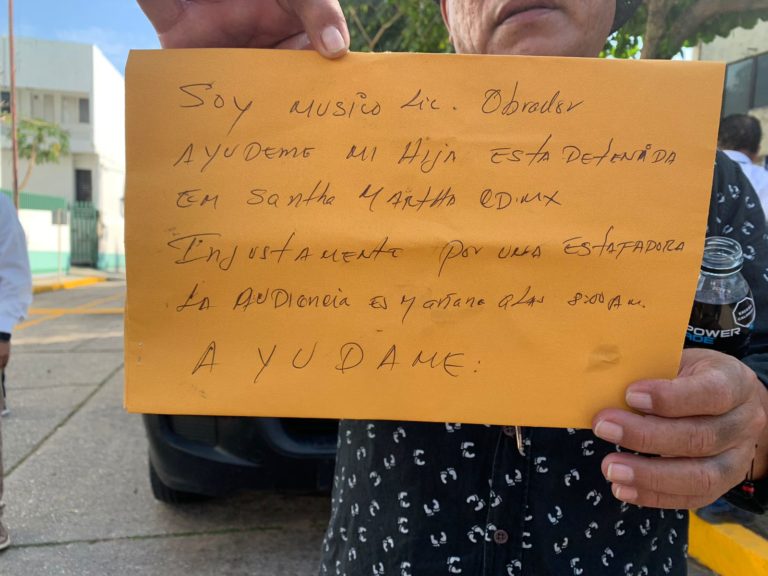 Soy musico Lic. Obrador
AYUDEME MI Hija ESTA DETENIDA
EM Santha MARTHA CDMX
INJUSTAMENTE POR UNA ESTAFADORA
LA AUDIENCIA ES Mañana a las 8:00 Am.
AYUDAME:
POWER
ADE